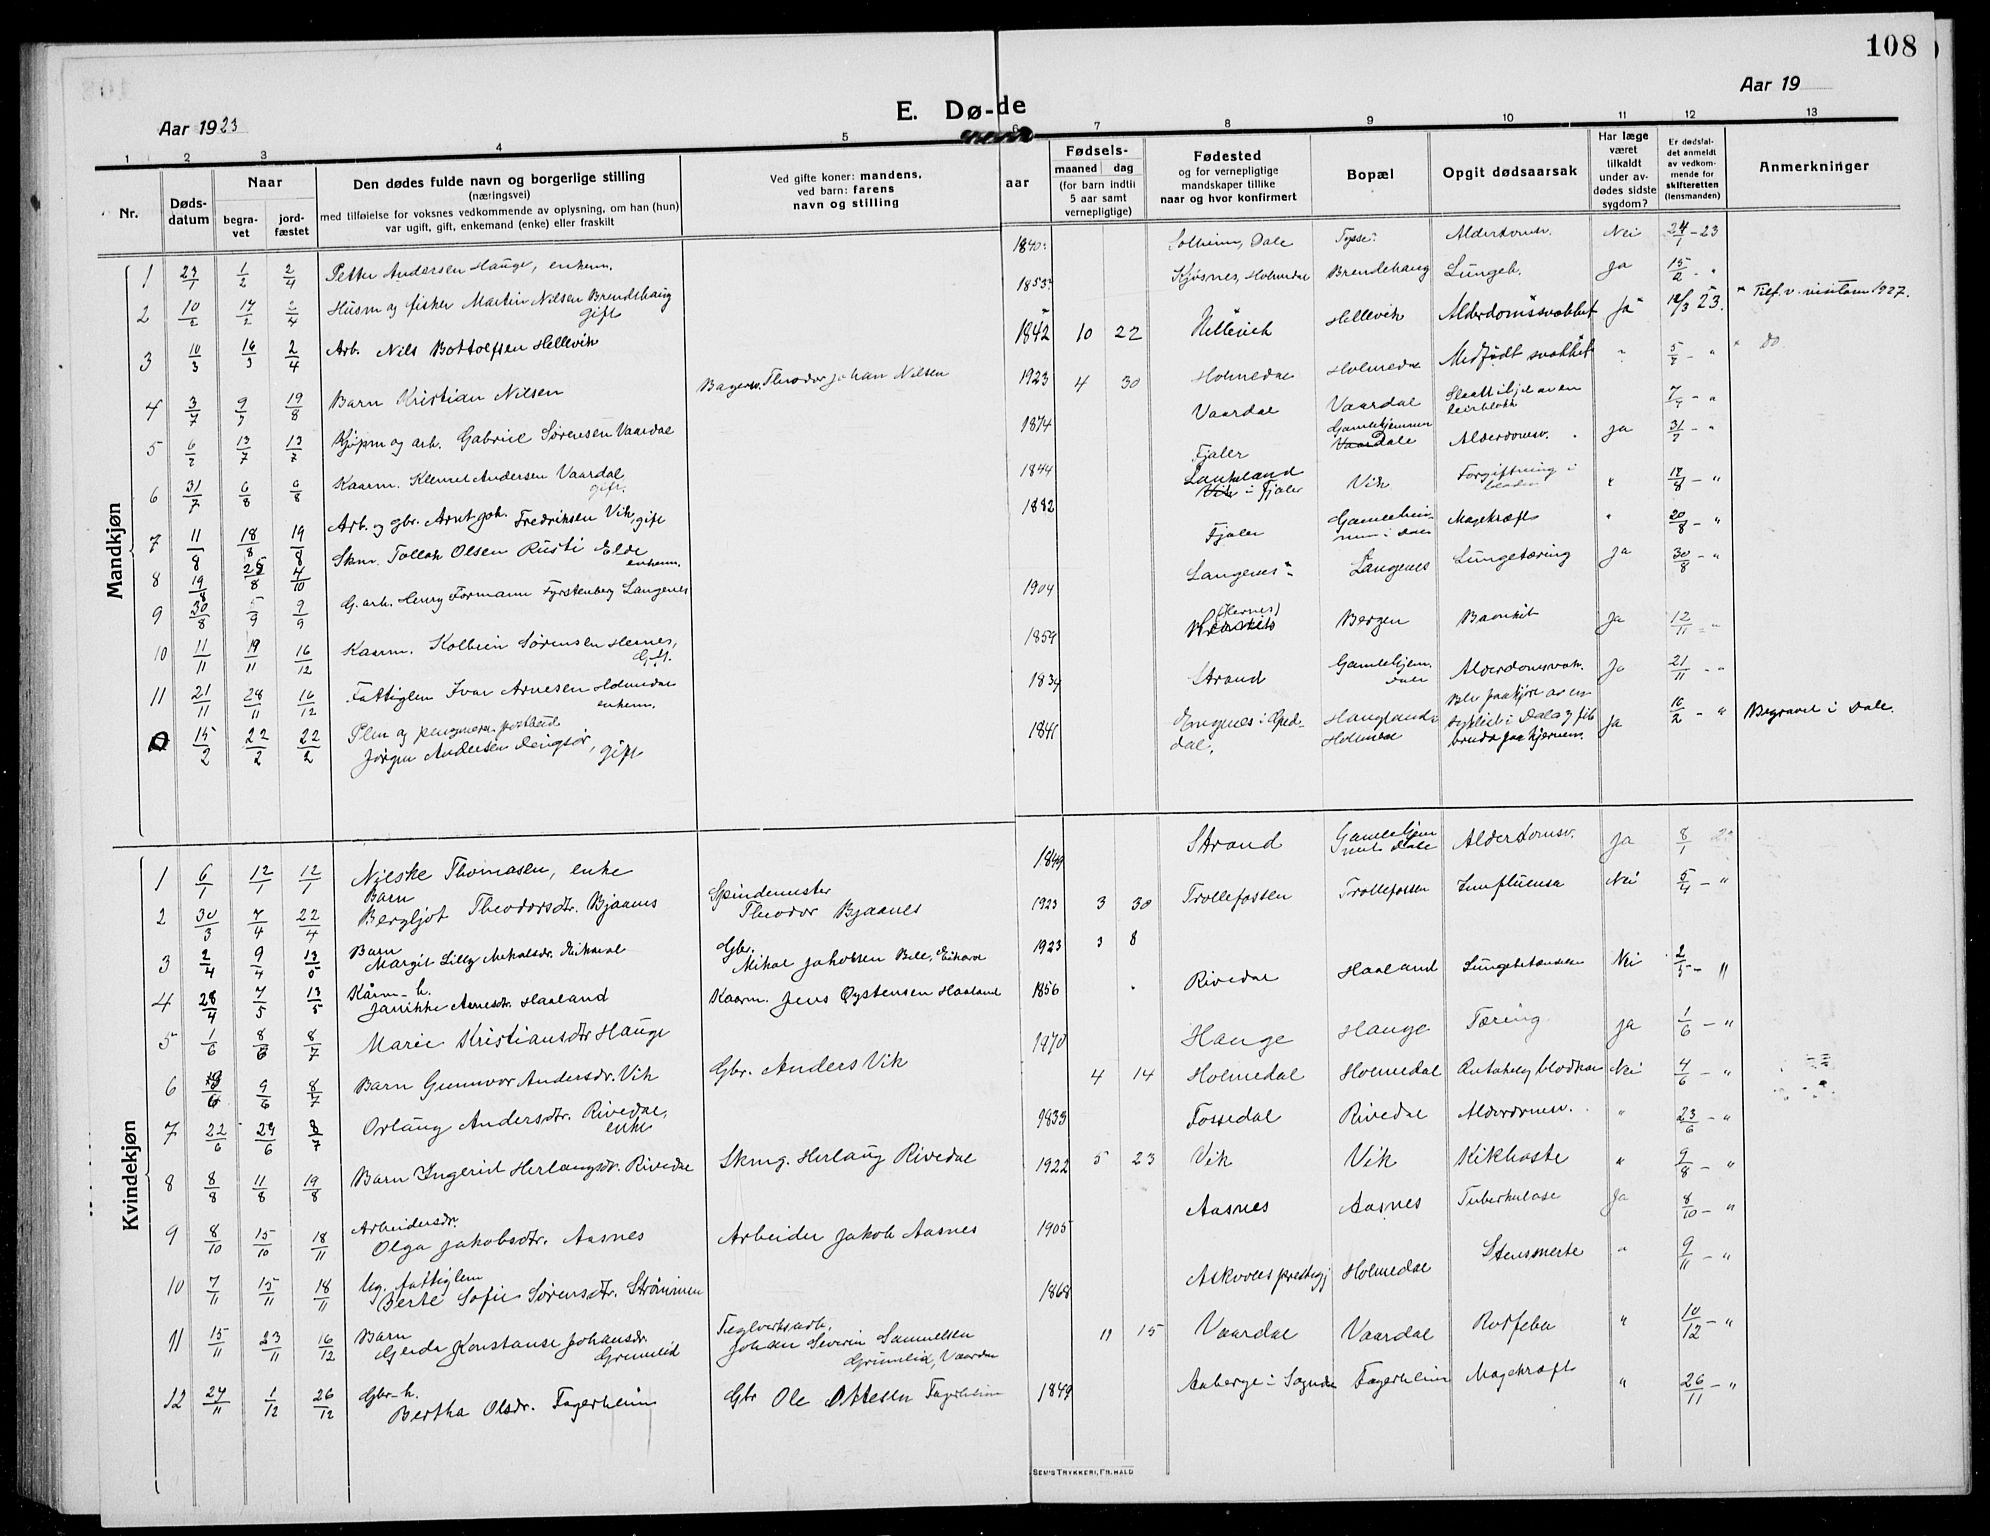 108
Aar 1923
E. Dø-de
Aar 19
1 2 3 4 5 6 7 8 9 10 11 12 13
Nr.
Døds-datum
Naar
begra-vet
jord-fæstet
Den dødes fulde navn og borgerlige stilling
(næringsvei)
med tilføielse for voksnes vedkommende av oplysning, om han (hun)
var ugift, gift, enkemand (enke) eller fraskilt
Ved gifte koner: mandens,
ved barn: farens
navn og stilling
aar
Fødsels-
maaned dag
(for barn indtil
5 aar samt
vernepligtige)
Fødested
og for vernepligtige
mandskaper tillike
naar og hvor konfirmert
Bopæl
Opgit dødsaarsak
Har læge
været
tilkaldt
under av-
dødes sidste
sygdom?
Er dødsfal-
det anmeldt
av vedkom-
mende for
skifteretten
(lensmanden)
Anmerkninger
Mandkjøn
1 23/1 1/2 2/4 Petter Andersen Hauge, enkem. 1840 Solheim, Dale Tysse Alderdomsv. Nei 24/1-23
2 10/2 17/2 2/4 Husm og fisker Martin Nilsen Brendehaug gift 1853 Kjøsnes, Holmedal Brendehaug Lungeb. Ja 15/2 - "
3 10/3 16/3 2/4 Arb. Nils Bottolfsen Hellevik 1842 10 22 Hellevik Hellevik Alderdomssvakhet Ja 12/3 23. " Tilf. v. visitasen 1927.
4 3/7 9/7 19/8 Barn Kristian Nilsen Bagersv. Theodor Johan Nilsen 1923 4 30 Holmedal Holmedal Medfødt svakhet " 5/7 - " " Do
5 6/7 13/7 13/7 Kjøpm og arb. Gabriel Sørensen Vaardal 1874 Vaardal Vaardal Slaatt ihjel av en leirblokk 7/7 - "
6 31/7 6/8 6/8 Kaarm. Klemet Andersen Vaardal gift. 1844 Fjaler Gamlehjemmet Dale Alderdomsv. Ja 31/7 - "
7 11/8 18/8 19/8 Arb. og gbr. Arnt Joh. Fredriksen Vik, gift 1882 Lankeland Vik i Fjaler Vik Forgiftning i blodet " 18/8 - "
8 19/8 25/8 4/10 Skm. Tollak Olsen Rusti Elde enkem. Fjaler Gamleheimen i Dale Magekræft " 20/8 - "
9 30/8 5/9 9/9 G. arb. Henry Formann Fyrstenberg Langenes 1904 Langenes Langenes Lungetæring Ja 30/8 - "
10 11/11 19/11 16/12 Kaarm. Kolbein Sørensen Hernes, Gift. 1859 (Hernes) Bergen Ja 12/11 - "
11 21/11 28/11 16/12 Fattiglem Ivar Arnesen Holmedal enkem. 1834 Strand Gamlehjem. Dale Alderdomsvak. Ja 21/11 - "
0 15/2 22/2 22/2 Jørgen Andersen, gift 1841 Holmedal Blev paakjørt av en i Dale og fik Ja 16/2 - " Begravet i Dale.
Kvindekjøn
1 6/1 12/1 12/1 Nilske Thomasen, enke 1849 Strand Gamlehjemmet Dale Alderdomsv. Ja 8/1 23
2 30/3 7/4 22/4 Barn Bergljot Theodorsdtr. Bjaanes Spindemester Theodor Bjaanes 1923 3 30 Trollefossen Trollefossen Influensa Nei 5/4 - "
3 2/4 9/4 13/5 Barn Margit Lilly Mikalsdr. Eikaval Gbr. Mikal Jakobsen 1923 3 8
4 28/4 7/5 13/5 Kårm-k. Jarnikke Arnesdtr. Haaland Kaarm. Jens Øystensen Haaland 1856 Rivedal Haaland Lungebetændelse Nei 2/5 - "
5 1/6 8/6 8/7 Marie Kristiansdtr. Hauge 1970 Hauge Hauge Tæring Ja 1/6 - "
6 3/6 9/6 8/7 Barn Gunnvor Andersdr. Vik Gbr. Anders Vik 4 14 Holmedal Holmedal Nei 4/6 - "
7 22/6 29/6 8/7 Orlaug Andersdtr. Rivedal, enke 1839 Fossedal Rivedal Alderdomsv. " 23/6 - "
8 8/8 11/8 19/8 Barn Ingerid Herlaugsdr. Rivedal Skmg. Herlaug Rivedal 1922 5 23 Vik Vik Kikhoste " 9/8 - "
9 8/10 15/10 18/11 Arbeidersdr. Olga Jakobsdtr. Aasnes Arbeider Jakob Aasnes 1905 Aasnes Aasnes Tuberkulose Ja 8/10 - "
10 7/11 15/11 18/11 Ug. fattiglem Berte Sofie Sørensdtr. Strømmen 1868 Askvoll prestegj Holmedal Stensmerte " 9/11 - "
11 15/11 23/11 16/12 Barn Gerda Konstanse Johansdr. Grimelid Teglverksarb. Johan Severin Samuelsen Grimelid, Vaardal 11 15 Vaardal Vaardal " 10/12 - "
12 24/11 1/12 26/12 Gbr-k. Bertha Olsdr. Fagerheim Gbr Ole Ottesen Fagerheim 1849 Aaberge i Sogndal Fagerheim Magekræft " 26/11 - "
SEM'S TRYKKERI, FR.HALD